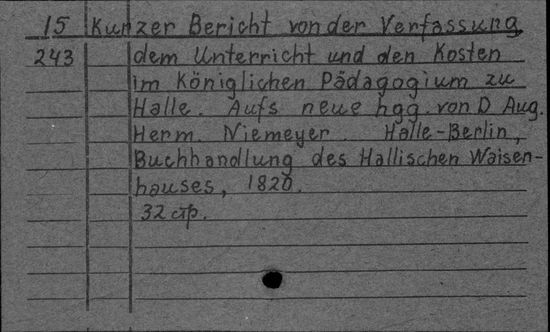 15 Kurzer Bericht von der Verfassung
243 dem Unterricht und den Kosten
im Königlichen Pädagogium zu
Halle. Aufs neue hgg. von D Aug.
Herm. Niemeyer. Halle-Berlin,
Buchhandlung des Hallischen Waisen-
hauses, 1820.
32 стр.